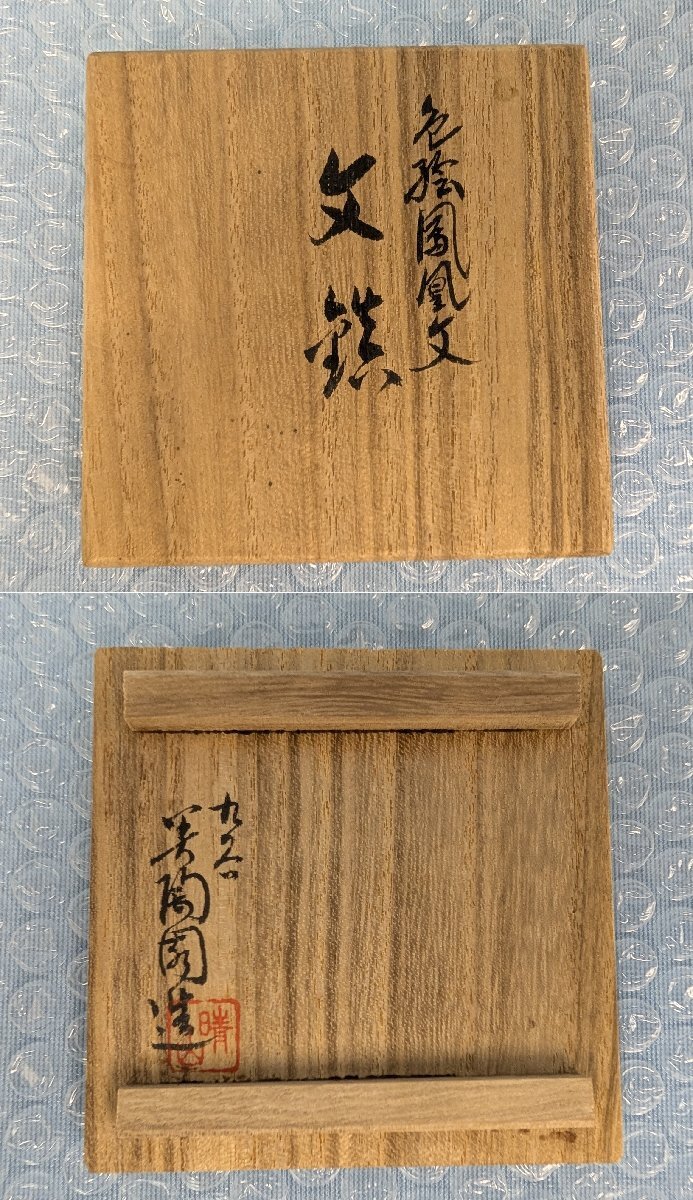 色絵鳳凰文
文鎮
九谷
美陶園造
晴山